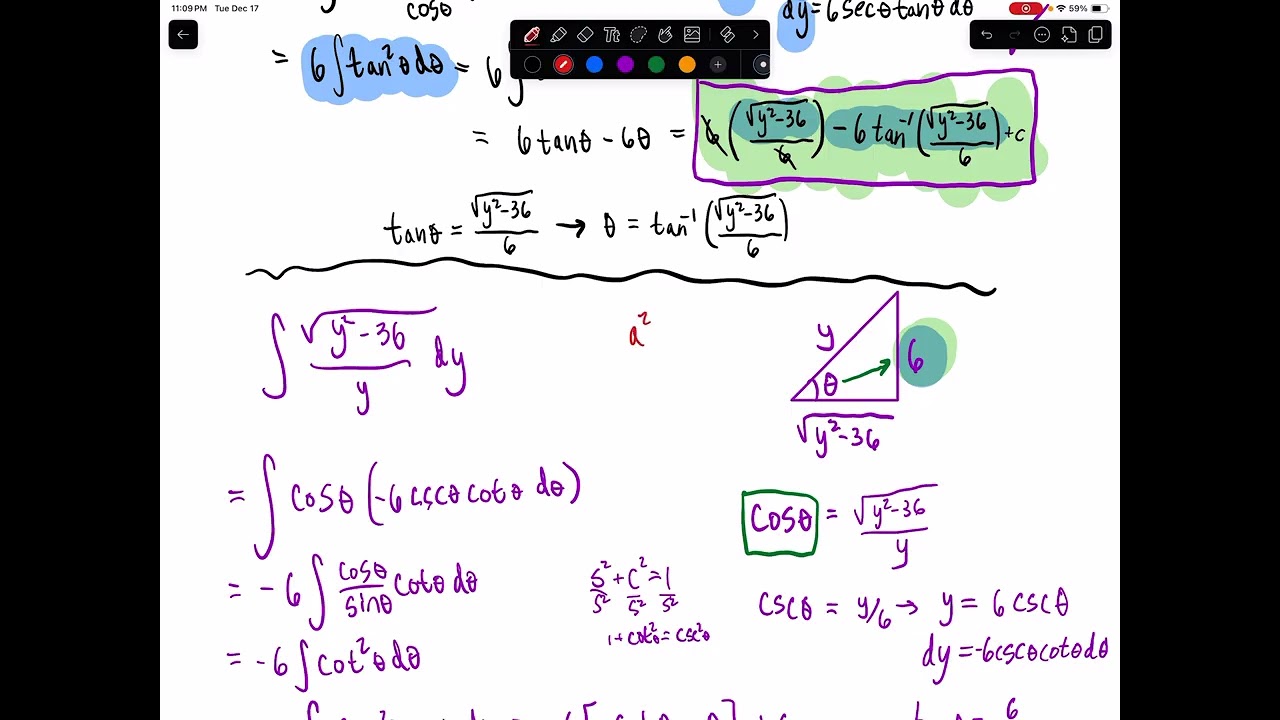 11:09 PM Tue Dec 17 59%
cosθ dy = 6 secθ tanθ dθ
Tt
= 6∫tan²θdθ = 6∫
= 6tanθ - 6θ = 6(√(y²-36)/6) - 6tan⁻¹(√(y²-36)/6) + c
tanθ = √(y²-36)/6 → θ = tan⁻¹(√(y²-36)/6)
∫ √(y²-36)/y dy
a²
y
θ
6
√(y²-36)
= ∫cosθ(-6cscθcotθ dθ)
cosθ = √(y²-36)/y
= -6∫ cosθ/sinθ cotθ dθ
s²/s² + c²/s² = 1/s²
1+cot²θ = csc²θ
cscθ = y/6 → y = 6cscθ
dy = -6cscθcotθdθ
= -6∫cot²θdθ